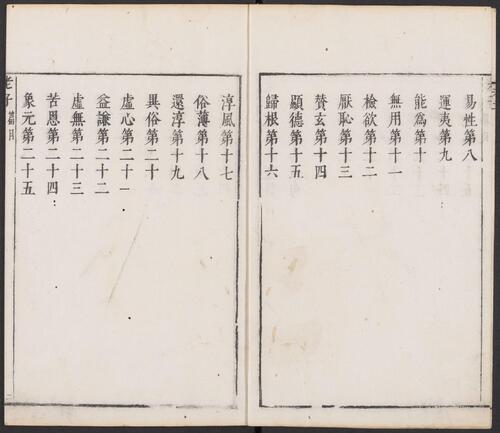 易性第八
運夷第九
能爲第十
無用第十一
檢欲第十二
厭恥第十三
贊玄第十四
顯德第十五
歸根第十六
淳風第十七
俗薄第十八
還淳第十九
異俗第二十
虛心第二十一
益謙第二十二
虛無第二十三
苦恩第二十四
象元第二十五
老子 篇目